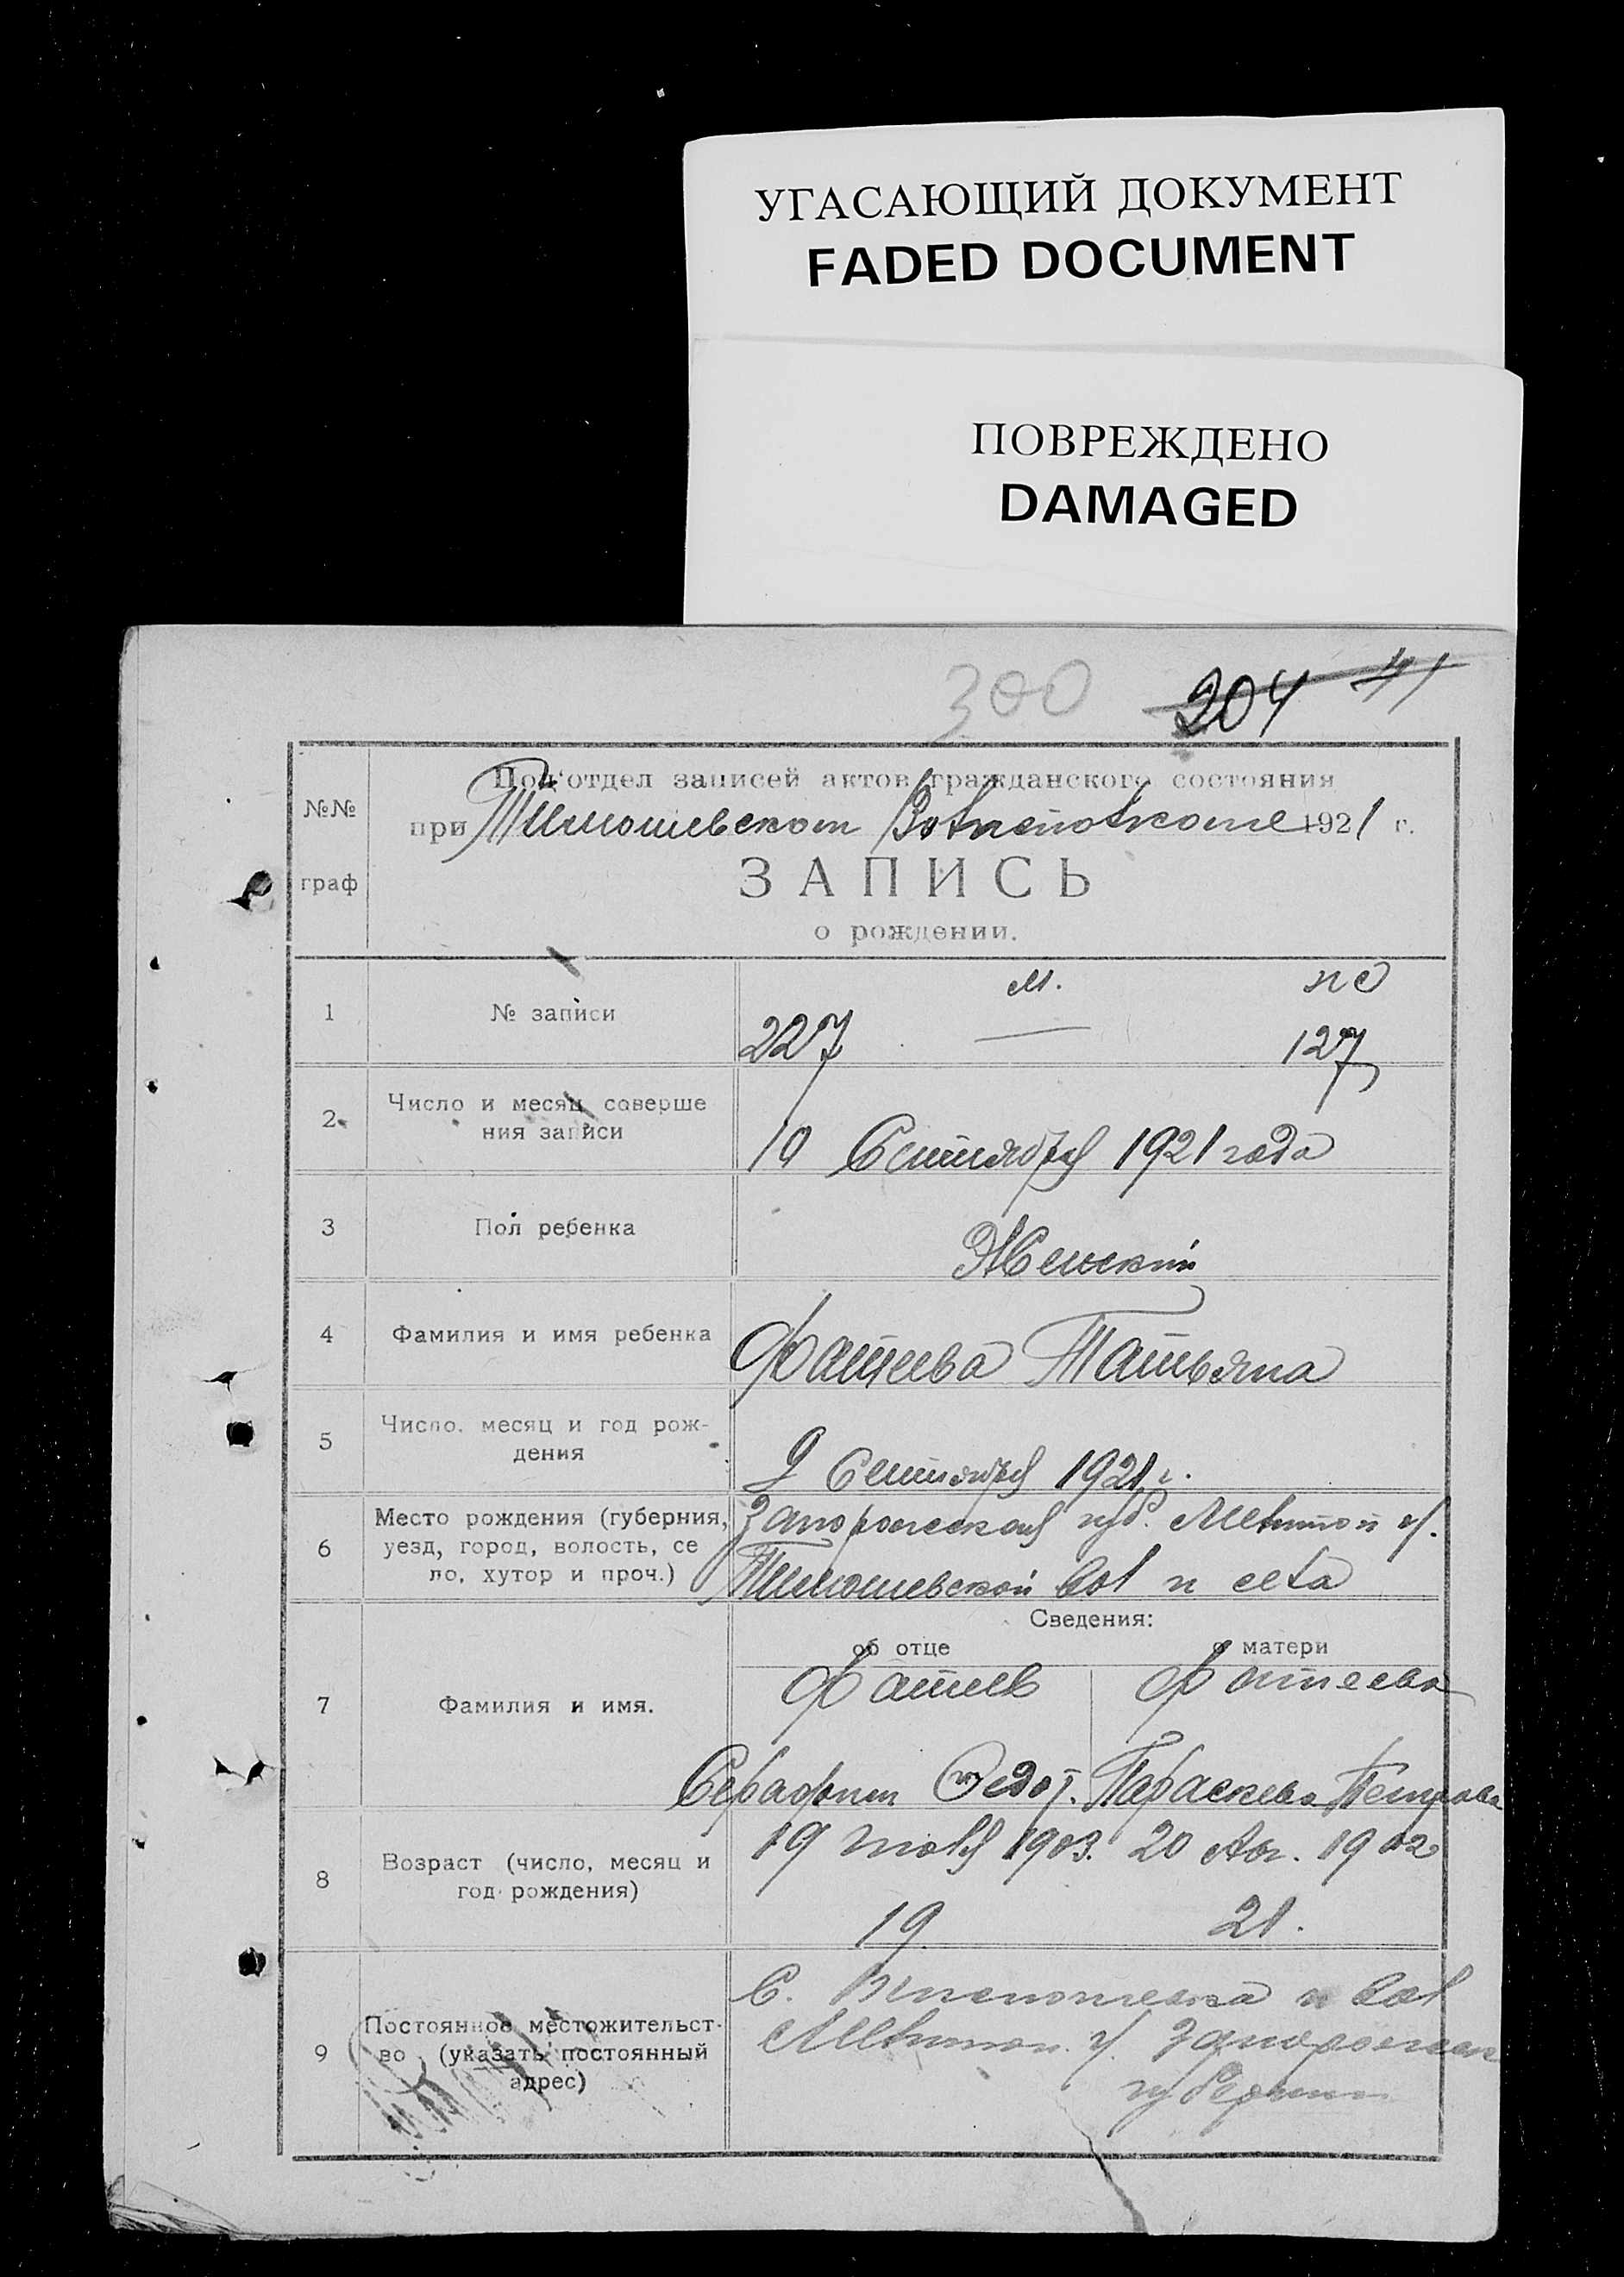 УГАСАЮЩИЙ ДОКУМЕНТ
FADED DOCUMENT
ПОВРЕЖДЕНО
DAMAGED
300 204 41
Под'отдел записей актов гражданского состояния
№№
при Тимошевском Волисполкоме 1921 г.
граф
ЗАПИСЬ
о рождении.
м.
1 № записи 227 — 127
2 Число и месяц соверше
ния записи
10 Сентября 1921 года
3 Пол ребенка Женский
4 Фамилия и имя ребенка Фатеева Татьяна
5 Число, месяц и год рож-
дения
9 Сентября 1921 г.
6 Место рождения (губерния,
уезд, город, волость, се
ло, хутор и проч.)
Запорожской губ. Мелитоп у.
Тимошевской вол и села
Сведения:
об отце о матери
7 Фамилия и имя.
Фатеев Фатеева
Серафим Федот. Параскева Петрова
8 Возраст (число, месяц и
год рождения)
19 июля 1903. 20 Авг. 1902
19 21.
9 Постоянное местожительст-
во (указать постоянный
адрес)
С. и вол
Мелитоп. у. Запорожск
губернии